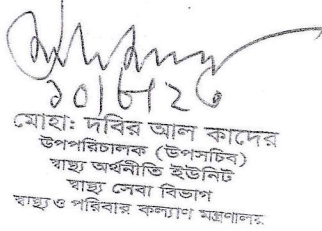 ১০।৮।২৫
মোহা: দবির আল কাদের
উপপরিচালক (উপসচিব)
স্বাস্থ্য অর্থনীতি ইউনিট
স্বাস্থ্য সেবা বিভাগ
স্বাস্থ্য ও পরিবার কল্যাণ মন্ত্রণালয়